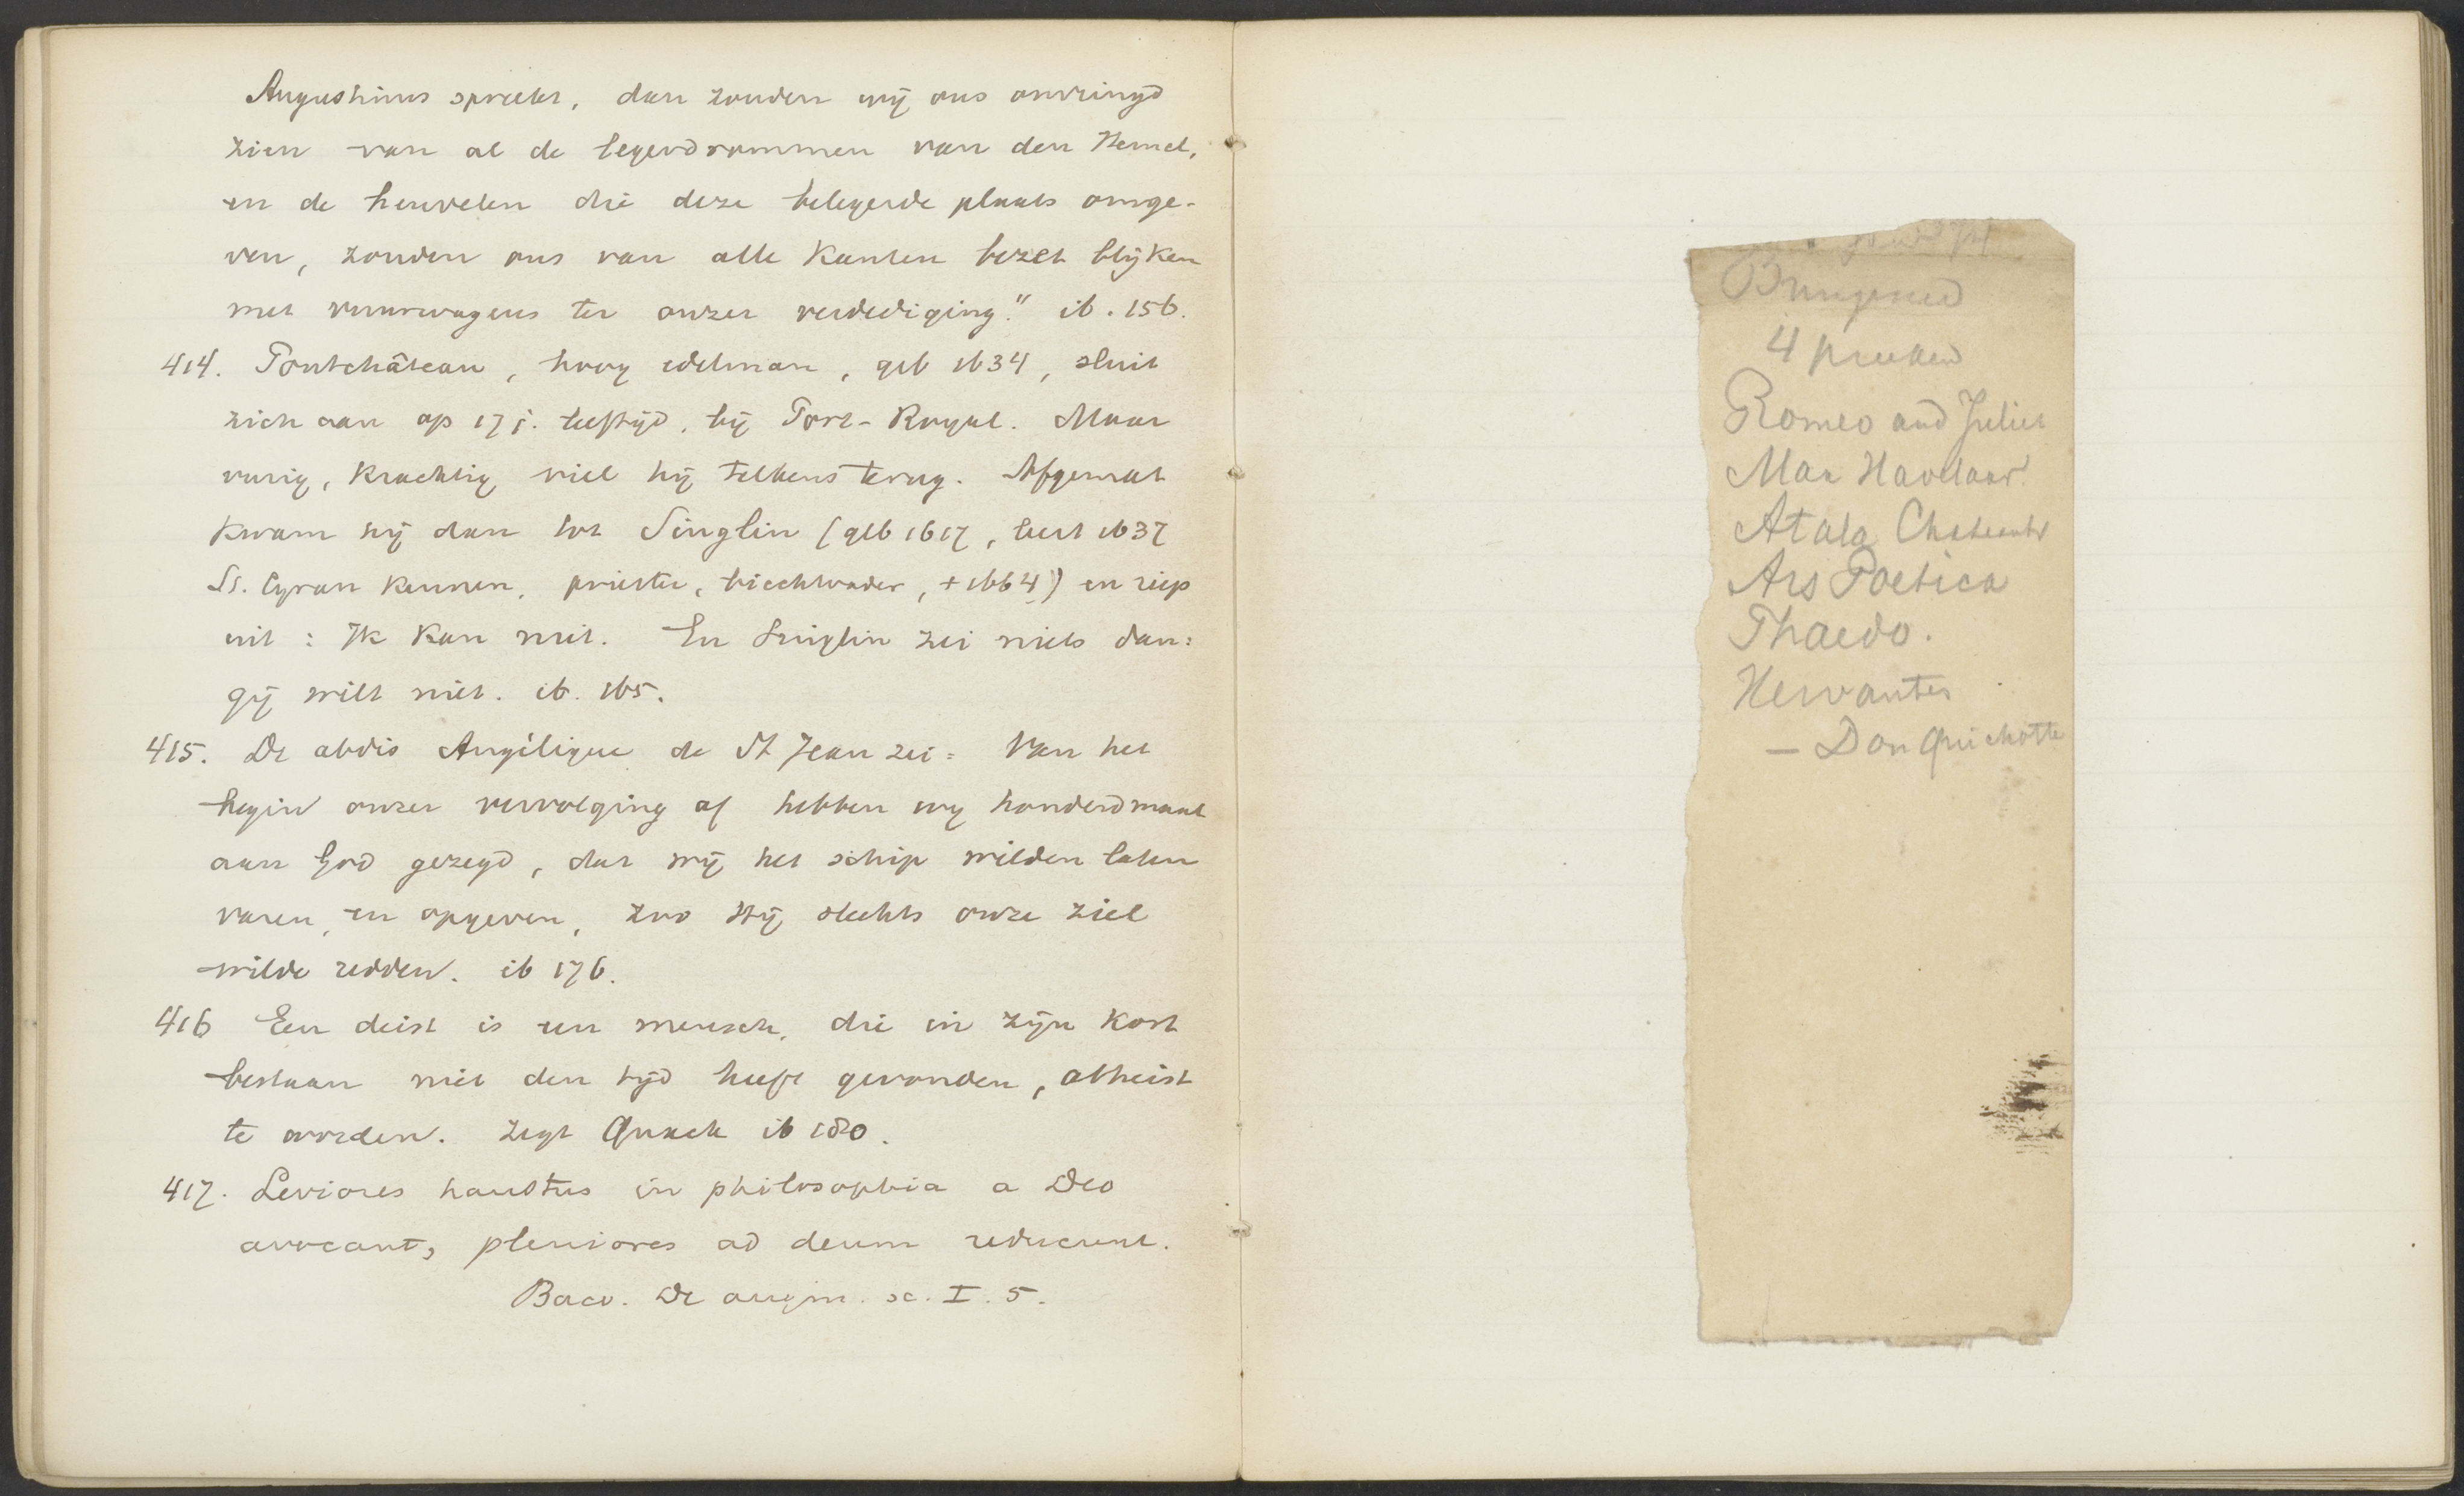 Augustinus spreekt, dan zouden wij ons omringd
zien van al de legerdrommen van den Hemel,
en de heuvelen die deze belegerde plaats omge-
ven, zouden ons van alle kanten bezet blijken
met vuurwagens ter onzer verdediging." ib. 156.
414. Pontchâteau, hoog edelman, geb 1634, sluit
zich aan op 17 j. leeftijd, bij Port-Royal. Maar
vurig, krachtig viel hij telkens terug. Afgemat
kwam hij dan tot Singlin (geb 1617, leert 1637
St. Cyran kennen, priester, biechtvader, + 1664) en riep
uit: Ik kan niet. En Singlin zei niets dan:
gij wilt niet. ib. 165.
415. De abdis Angélique de St Jean zei: Van het
begin onzer vervolging af hebben wij honderdmaal
aan God gezegd, dat wij het schip wilden laten
varen, en opgeven, zoo Hij slechts onze ziel
wilde redden. ib 176.
416 Een deist is een mensch, die in zijn kort
bestaan niet den tijd heeft gevonden, atheist
te worden. zegt Quack ib 180.
417. Leviores haustus in philosophia a Deo
avocant, pleniores ad deum reducunt.
Baco. De augm. sc. I. 5.
Bungener
4 preeken
Romeo and Juliet
Max Havelaar.
Atala Chateaubr
Ars Poetica
Phaedo.
Hervantes
— Don Quichotte